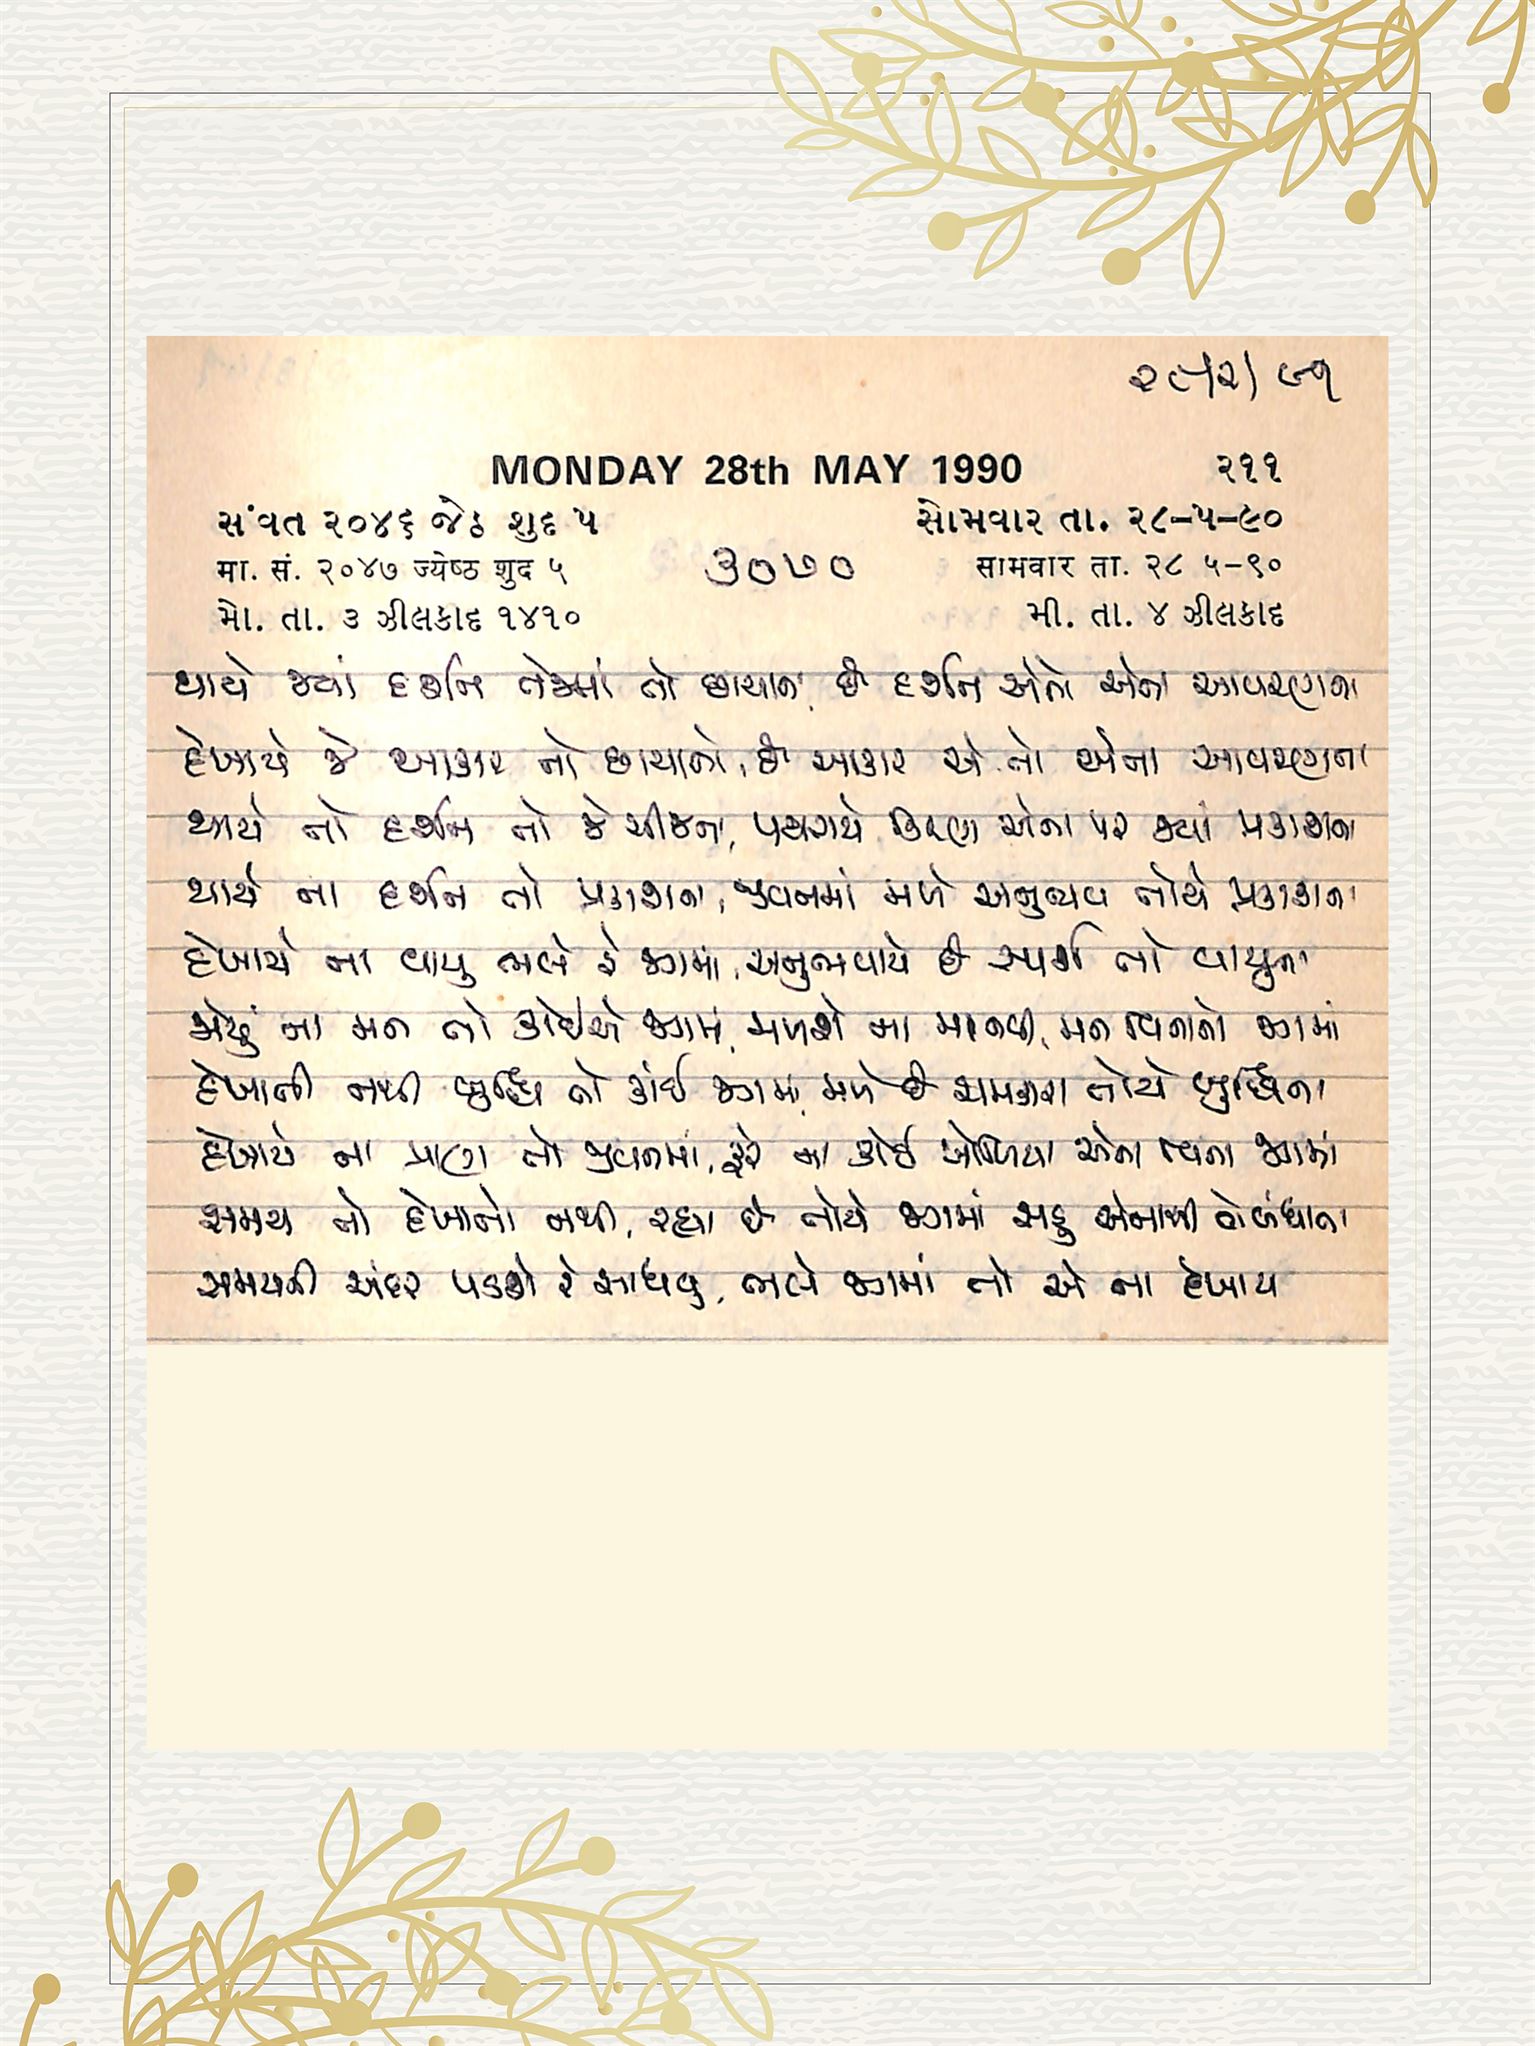 ૨૮/૨/૯૧
MONDAY 28th MAY 1990 ૨૧૧
સંવત ૨૦૪૬ જેઠ શુદ ૫ સોમવાર તા. ૨૮-૫-૯૦
मा. सं. ૨૦૪૭ ज्येष्ठ शुद ૫ ૩૦૭૦ सामवार ता. ૨૮ ૫-૯૦
મો. તા. ૩ ઝીલકાદ ૧૪૧૦ મી. તા. ૪ ઝીલકાદ
થાયે જ્યાં દર્શન તેજમાં તો છાયાના, છે દર્શન એતો એના આવરણના
દેખાયે જે આકાર તો છાયાનો, છે આકાર એ તો એના આવરણના
થાયે તો દર્શન તો જે ચીજના, પથરાયે કિરણ એના પર જ્યાં પ્રકાશના
થાયે ના દર્શન તો પ્રકાશના, જીવનમાં મળે અનુભવ તોયે પ્રકાશના
દેખાયે ના વાયુ ભલે રે જગમાં, અનુભવાયે છે સ્પર્શ તો વાયુના
જોયું ના મન તો કોઈએ જગમાં, મળશે ના માનવી, મન વિનાનો જગમાં
દેખાતી નથી બુદ્ધિ તો કાંઈ જગમાં, મળે છે ચમકારા તોયે બુદ્ધિના
દેખાયે ના પ્રાણ તો જીવનમાં, ફરે ના કોઈ ખોળિયા એના વિના જગમાં
સમય તો દેખાતો નથી, રહ્યા છે તોયે જગમાં સહુ એનાથી તો બંધાતા
સમયની અંદર પડશે રે સાધવું, ભલે જગમાં તો એ ના દેખાય